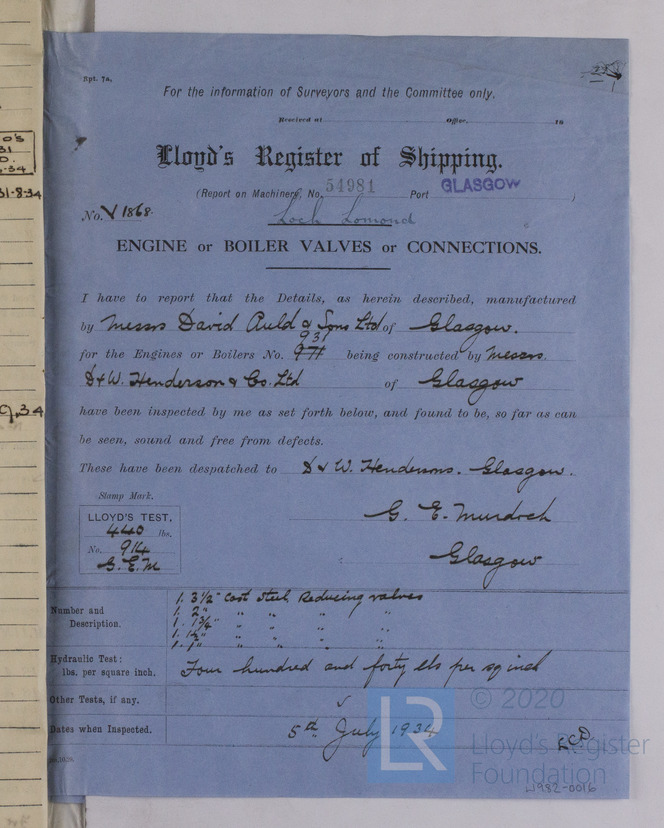 Rpt. 7a.
For the information of Surveyors and the Committee only.
Received at Office. 18
Lloyd's Register of Shipping.
(Report on Machinery, No. 54981 Port GLASGOW )
No. V 1868.
Loch Lomond
ENGINE or BOILER VALVES or CONNECTIONS.
I have to report that the Details, as herein described, manufactured
by Messrs David Auld & Sons Ltd of Glasgow.
931
for the Engines or Boilers No. 971 being constructed by Messrs.
D & W. Henderson & Co. Ltd of Glasgow
have been inspected by me as set forth below, and found to be, so far as can
be seen, sound and free from defects.
These have been despatched to D & W. Hendersons. Glasgow.
Stamp Mark.
G. E. Murdoch
LLOYD'S TEST.
440 lbs.
No. 914
G.E.M
Glasgow
Number and Description.
1. 3½" cast steel Reducing valves
1. 2" " " " "
1. 1¾" " " " "
1. 1½" " " " "
1. 1" " " " "
Hydraulic Test: lbs. per square inch.
Four hundred and forty lbs per sq inch
Other Tests, if any.
Dates when Inspected. 5th July 1934
© 2020
LR
Lloyd's Register
Foundation
W982-0016
31-8-34
9,34